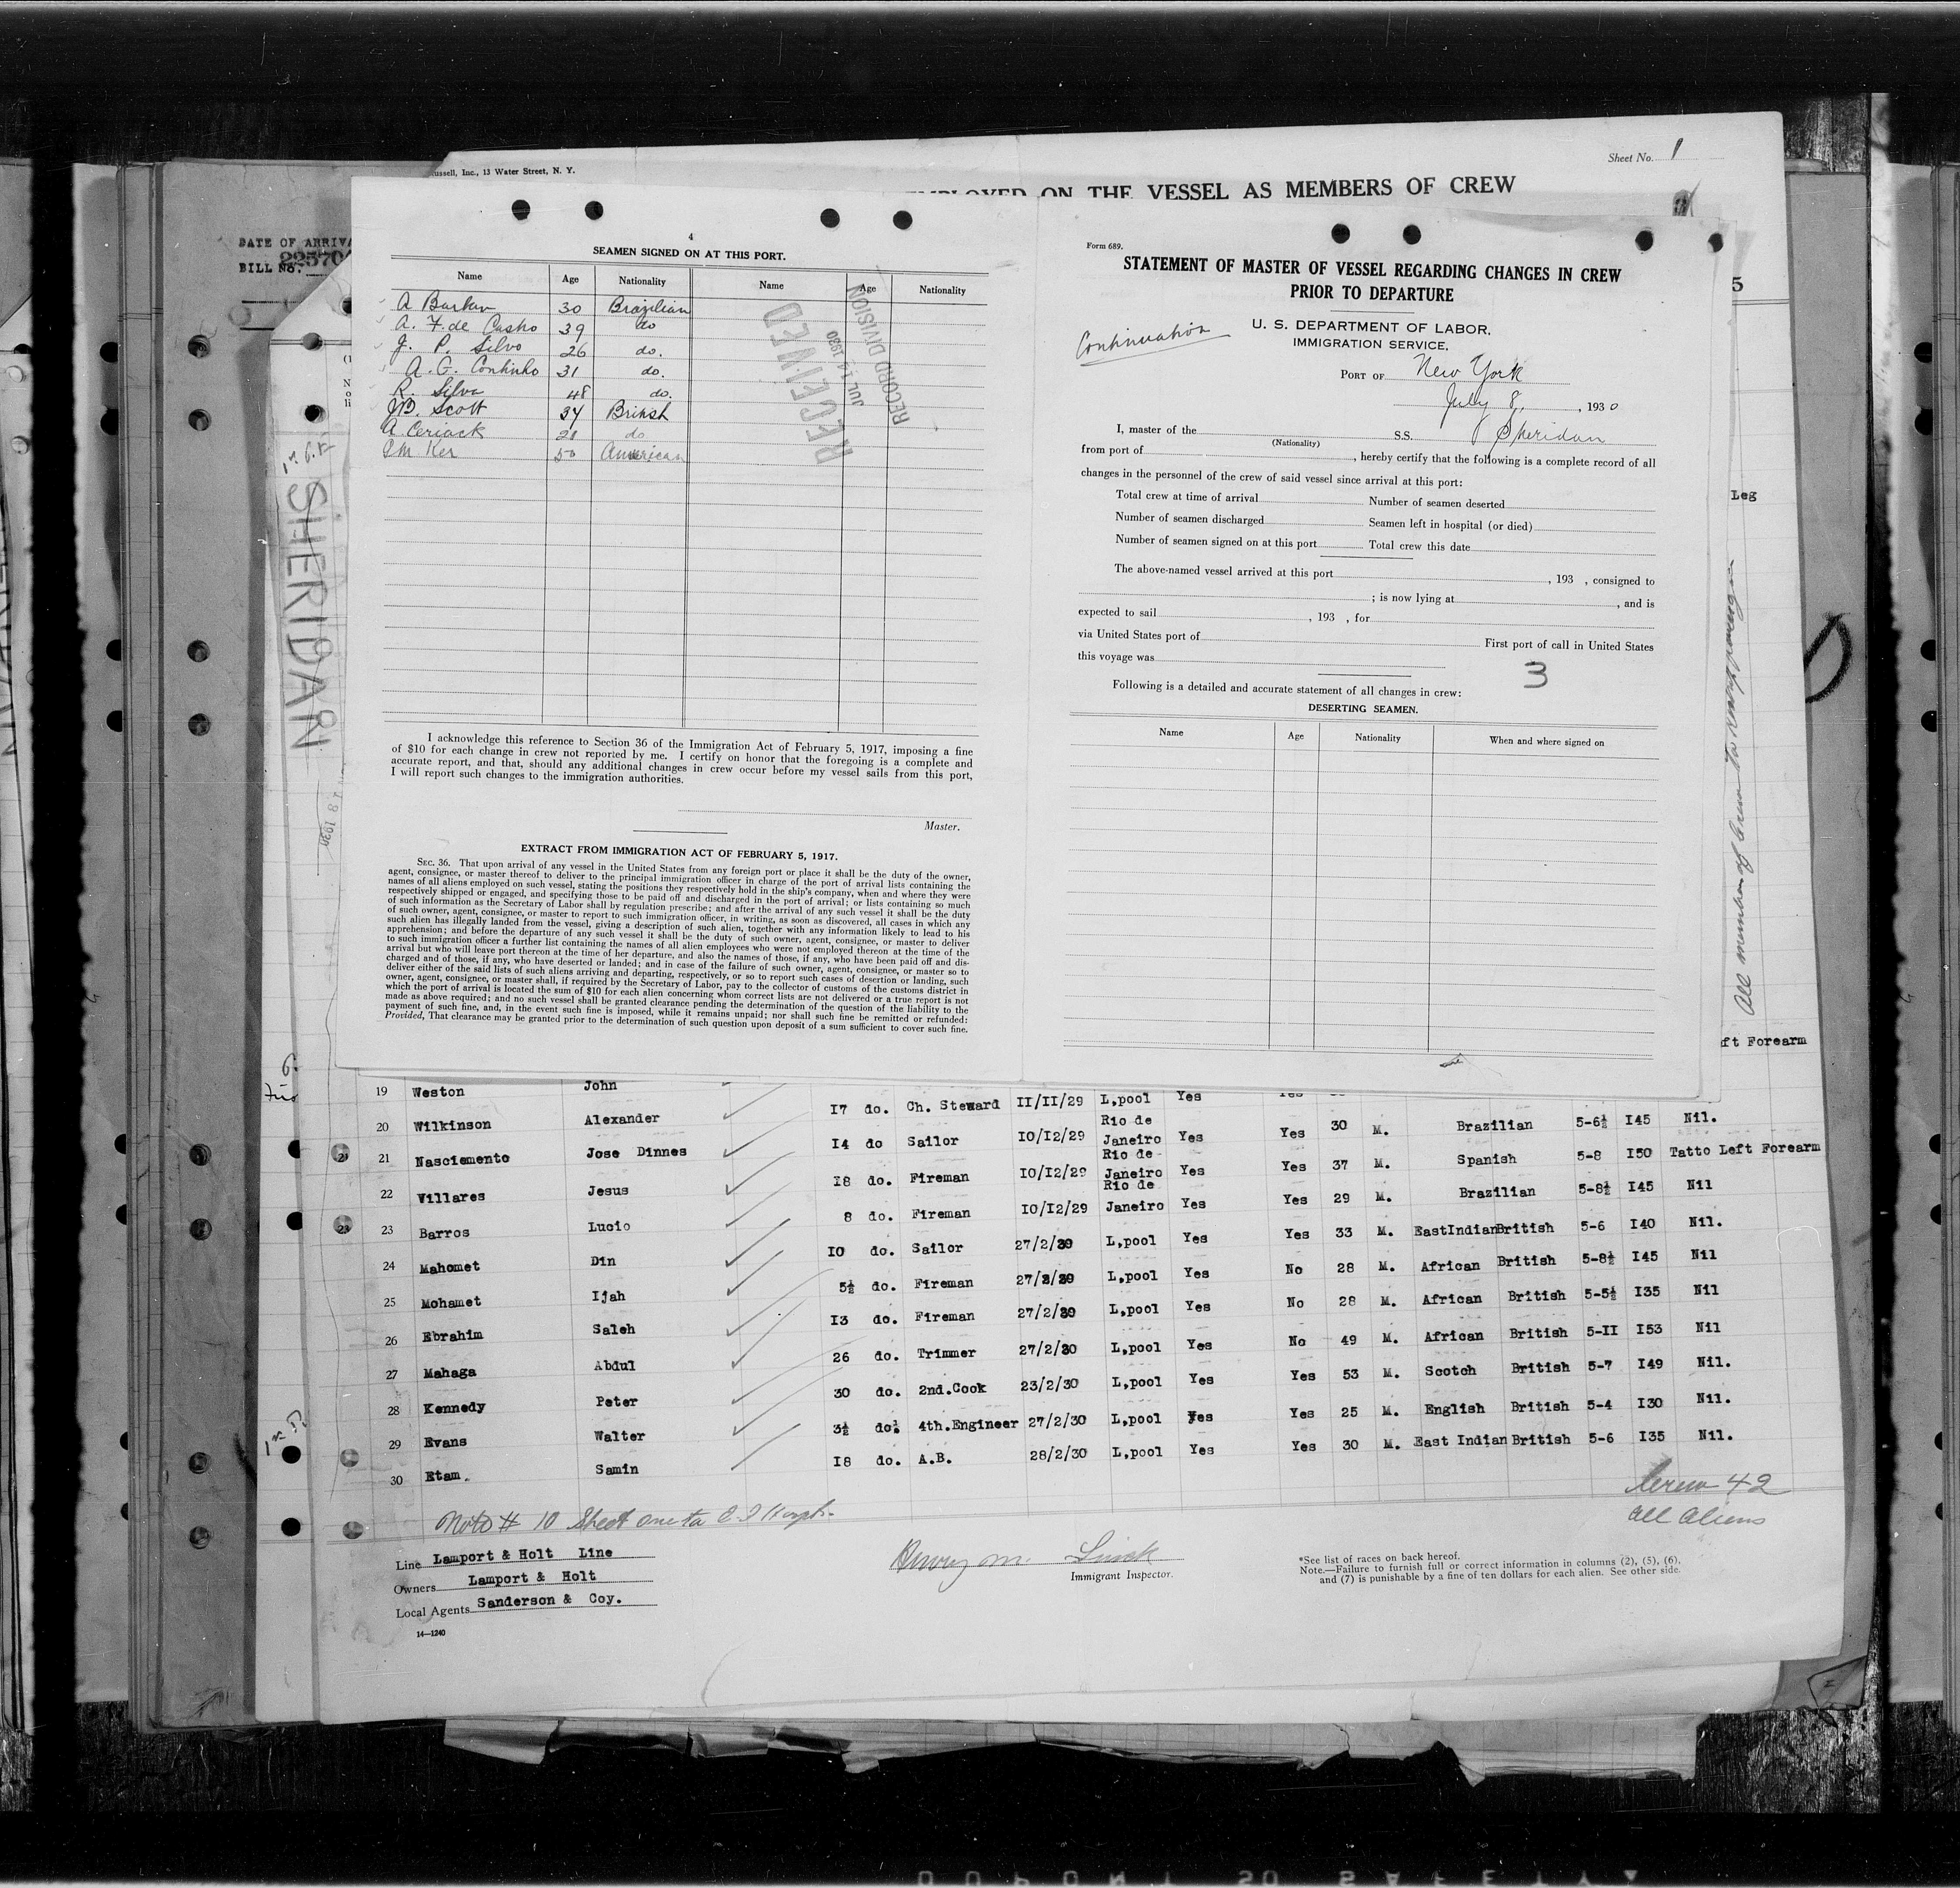 Russell, Inc., 13 Water Street, N. Y.
Sheet No. 1
EMPLOYED ON THE VESSEL AS MEMBERS OF CREW
DATE OF ARRIVA
BILL No.
SHERIDAN
4
SEAMEN SIGNED ON AT THIS PORT.
Name Age Nationality Name Age Nationality
A 30 Brazilian
A. F. de Castro 39 do
J. P. Silvo 26 do.
A. G. Continho 31 do.
R. Silva 48 do.
J.B. Scott 34 British
A. Ceriack 21 do
Ker 50 American
RECEIVED
JUL 14 1930
RECORD DIVISION
I acknowledge this reference to Section 36 of the Immigration Act of February 5, 1917, imposing a fine
of $10 for each change in crew not reported by me. I certify on honor that the foregoing is a complete and
accurate report, and that, should any additional changes in crew occur before my vessel sails from this port,
I will report such changes to the immigration authorities.
Master.
EXTRACT FROM IMMIGRATION ACT OF FEBRUARY 5, 1917.
SEC. 36. That upon arrival of any vessel in the United States from any foreign port or place it shall be the duty of the owner,
agent, consignee, or master thereof to deliver to the principal immigration officer in charge of the port of arrival lists containing the
names of all aliens employed on such vessel, stating the positions they respectively hold in the ship's company, when and where they were
respectively shipped or engaged, and specifying those to be paid off and discharged in the port of arrival; or lists containing so much
of such information as the Secretary of Labor shall by regulation prescribe; and after the arrival of any such vessel it shall be the duty
of such owner, agent, consignee, or master to report to such immigration officer, in writing, as soon as discovered, all cases in which any
such alien has illegally landed from the vessel, giving a description of such alien, together with any information likely to lead to his
apprehension; and before the departure of any such vessel it shall be the duty of such owner, agent, consignee, or master to deliver
to such immigration officer a further list containing the names of all alien employees who were not employed thereon at the time of the
arrival but who will leave port thereon at the time of her departure, and also the names of those, if any, who have been paid off and dis-
charged and of those, if any, who have deserted or landed; and in case of the failure of such owner, agent, consignee, or master so to
deliver either of the said lists of such aliens arriving and departing, respectively, or so to report such cases of desertion or landing, such
owner, agent, consignee, or master shall, if required by the Secretary of Labor, pay to the collector of customs of the customs district in
which the port of arrival is located the sum of $10 for each alien concerning whom correct lists are not delivered or a true report is not
made as above required; and no such vessel shall be granted clearance pending the determination of the question of the liability to the
payment of such fine, and, in the event such fine is imposed, while it remains unpaid; nor shall such fine be remitted or refunded:
Provided, That clearance may be granted prior to the determination of such question upon deposit of a sum sufficient to cover such fine.
Form 689.
STATEMENT OF MASTER OF VESSEL REGARDING CHANGES IN CREW
PRIOR TO DEPARTURE
Continuation
U. S. DEPARTMENT OF LABOR,
IMMIGRATION SERVICE,
PORT OF New York
July 8, , 1930
I, master of the (Nationality) S.S. Sheridan
from port of , hereby certify that the following is a complete record of all
changes in the personnel of the crew of said vessel since arrival at this port:
Total crew at time of arrival Number of seamen deserted
Number of seamen discharged Seamen left in hospital (or died)
Number of seamen signed on at this port Total crew this date
The above-named vessel arrived at this port , 193 , consigned to
; is now lying at , and is
expected to sail , 193 , for
via United States port of First port of call in United States
this voyage was
3
Following is a detailed and accurate statement of all changes in crew:
DESERTING SEAMEN.
Name Age Nationality When and where signed on
5
Leg
All members of crew
ft Forearm
19 Weston John 17 do. Ch. Steward 11/11/29 L,pool Yes Yes
20 Wilkinson Alexander 14 do Sailor 10/12/29 Rio de Janeiro Yes Yes 30 M. Brazilian 5-6½ 145 Nil.
21 Nasciemento Jose Dinnes 18 do. Fireman 10/12/29 Rio de Janeiro Yes Yes 37 M. Spanish 5-8 150 Tatto Left Forearm
22 Villares Jesus 8 do. Fireman 10/12/29 Rio de Janeiro Yes Yes 29 M. Brazilian 5-8½ 145 Nil
23 Barros Lucio 10 do. Sailor 27/2/30 L,pool Yes Yes 33 M. EastIndian British 5-6 140 Nil.
24 Mahomet Din 5½ do. Fireman 27/2/30 L,pool Yes No 28 M. African British 5-8½ 145 Nil
25 Mohamet Ijah 13 do. Fireman 27/2/30 L,pool Yes No 28 M. African British 5-5½ 135 Nil
26 Ebrahim Saleh 26 do. Trimmer 27/2/30 L,pool Yes No 49 M. African British 5-11 153 Nil
27 Mahaga Abdul 30 do. 2nd.Cook 23/2/30 L,pool Yes Yes 53 M. Scotch British 5-7 149 Nil.
28 Kennedy Peter 3½ do. 4th.Engineer 27/2/30 L,pool Yes Yes 25 M. English British 5-4 130 Nil.
29 Evans Walter 18 do. A.B. 28/2/30 L,pool Yes Yes 30 M. East Indian British 5-6 135 Nil.
30 Etam. Samin
Note # 10 Sheet one
Crew 42
All Aliens
Line Lamport & Holt Line
Owners Lamport & Holt
Local Agents Sanderson & Coy.
14—1240
Immigrant Inspector.
*See list of races on back hereof.
Note.—Failure to furnish full or correct information in columns (2), (5), (6),
and (7) is punishable by a fine of ten dollars for each alien. See other side.